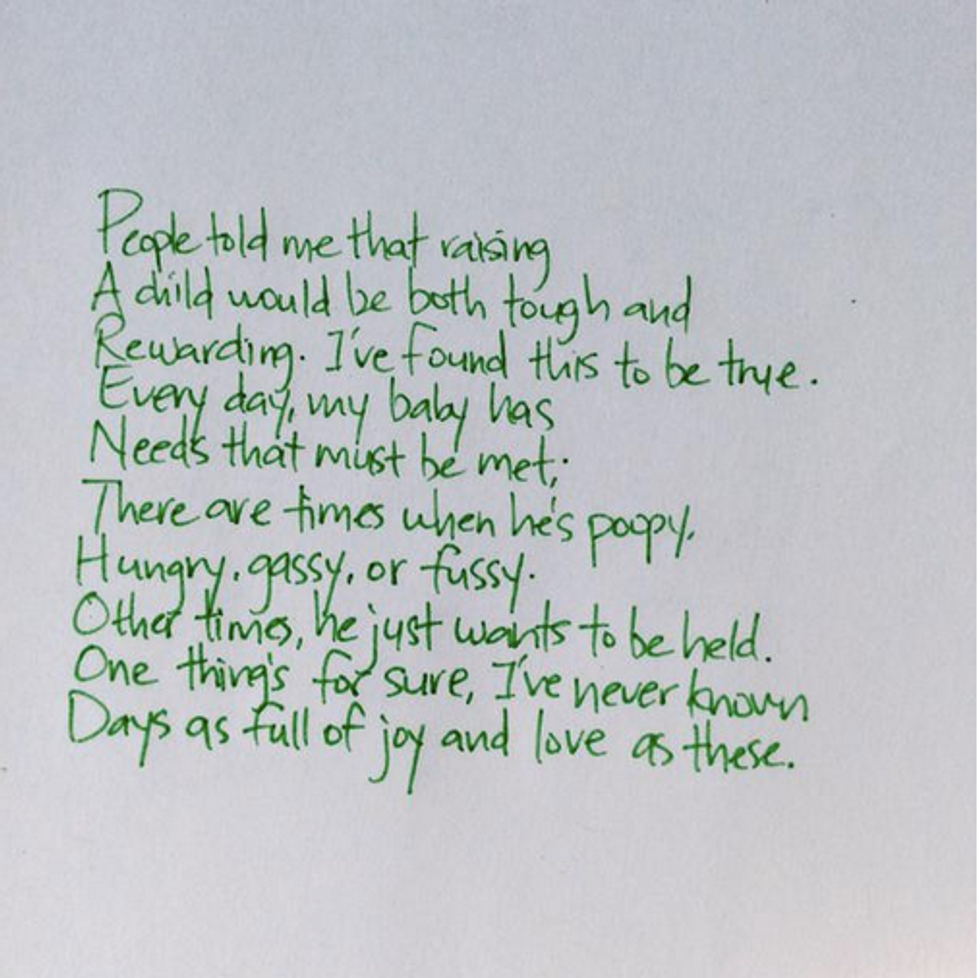 People told me that raising
A child would be both tough and
Rewarding. I've found this to be true.
Every day, my baby has
Needs that must be met;
There are times when he's poopy,
Hungry, gassy, or fussy.
Other times, he just wants to be held.
One thing's for sure, I've never known
Days as full of joy and love as these.